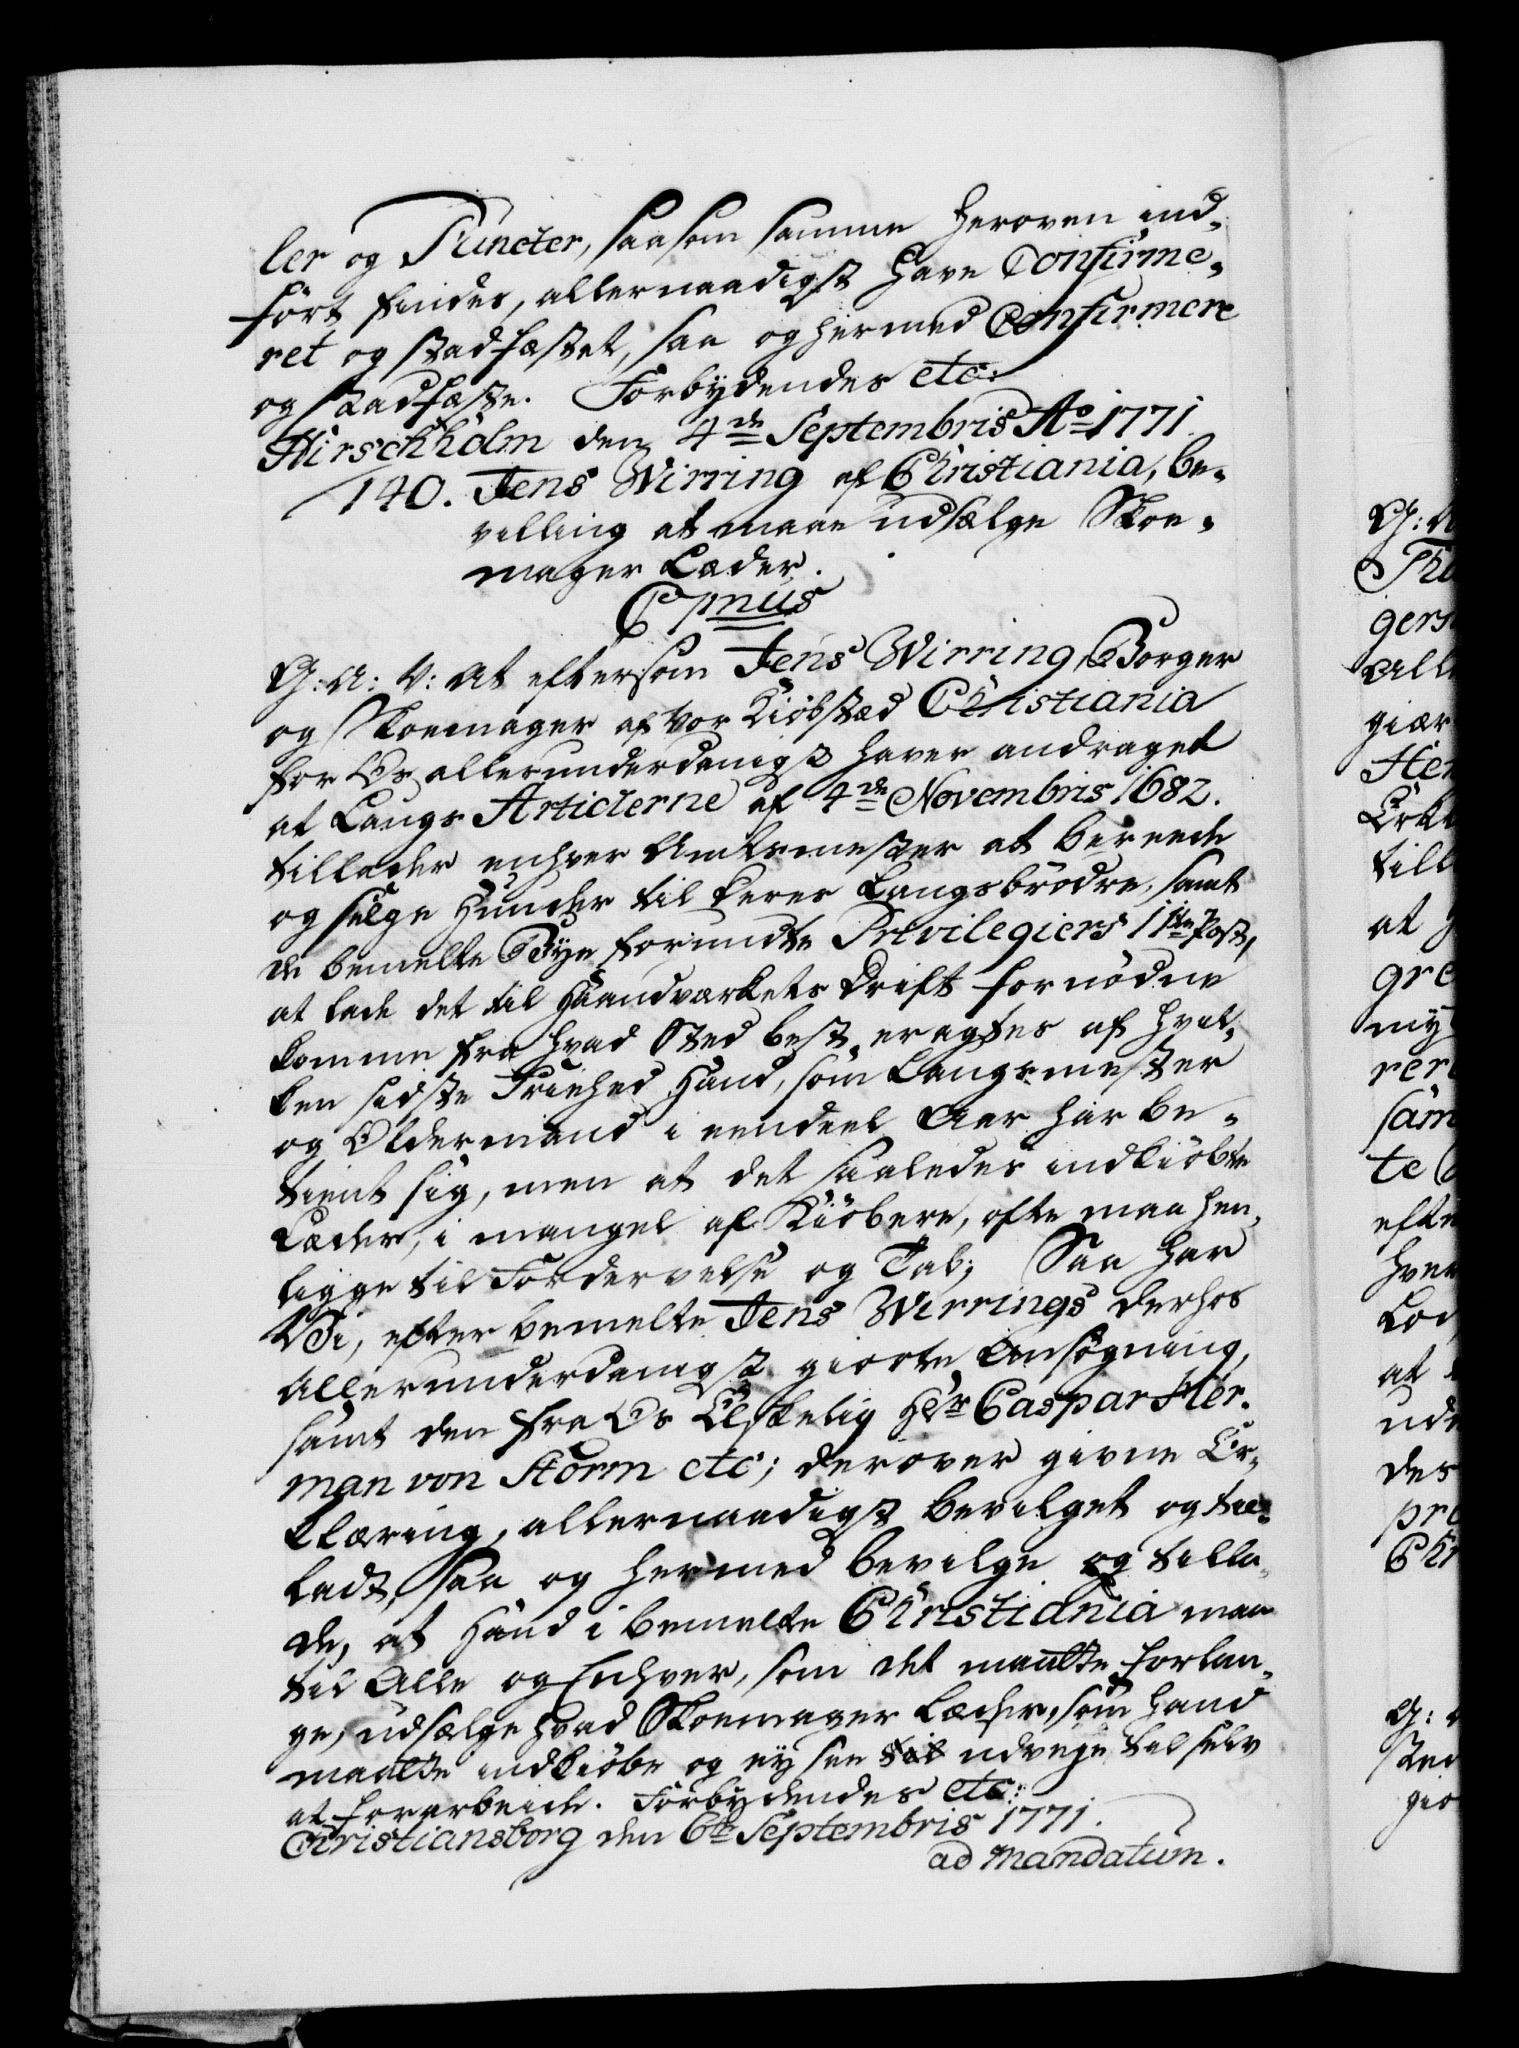 ler og Puncter, saasom samme heroven ind-
ført findes, allernaadigst have Confirme-
ret og stadfæstet, saa og hermed Confirmere
og stadfæste. Forbydendes etc:
Hirschholm den 4de Septembris Ao 1771
140. Jens Wirring af Christiania, be-
villing at maae udsælge Skoe-
mager Læder.
Cpnus
G: A: V: At eftersom Jens Wirring, Borger
og Skoemager af vor Kiøbstæd Christiania
for Os allerunderdanigst haver andraget
at Laugs Articlerne af 4de Novembris 1682.
tillader enhver Amtsmester at bereede
og selge Huuder til deres Laugsbrødre, samt
de bemelte Bye forundte Privilegiers 11te Post,
at lade det til Haandværkets Drift fornødne
komme fra hvad Sted best eragtes af hvil-
ken sidste Friehed Hand, som Laugsmester
og Oldermand i eendeel Aar har be-
tient sig, men at det saaledes indkiøbte
Læder, i mangel af Kiøbere, ofte maa hen-
ligge til Fordervelse og Tab; Saa har
Vi, efter bemelte Jens Wirrings derhos
allerunderdanigst giorte Ansøgning,
samt den fra Os Elskelig Hr Caspar Her-
man von Storm etc; derover givne Er-
klæring, allernaadigst bevilget og til-
ladt, saa og hermed bevilge og tilla-
de, at Hand i bemelte Christiania maa
til Alle og Enhver, som det maatte forlan-
ge, udsælge hvad Skoemager Læder, som hand
maatte indkiøbe og ey see udveje til selv
at forarbeide. Forbydendes etc:
Christiansborg den 6te Septembris 1771.
ad mandatum.